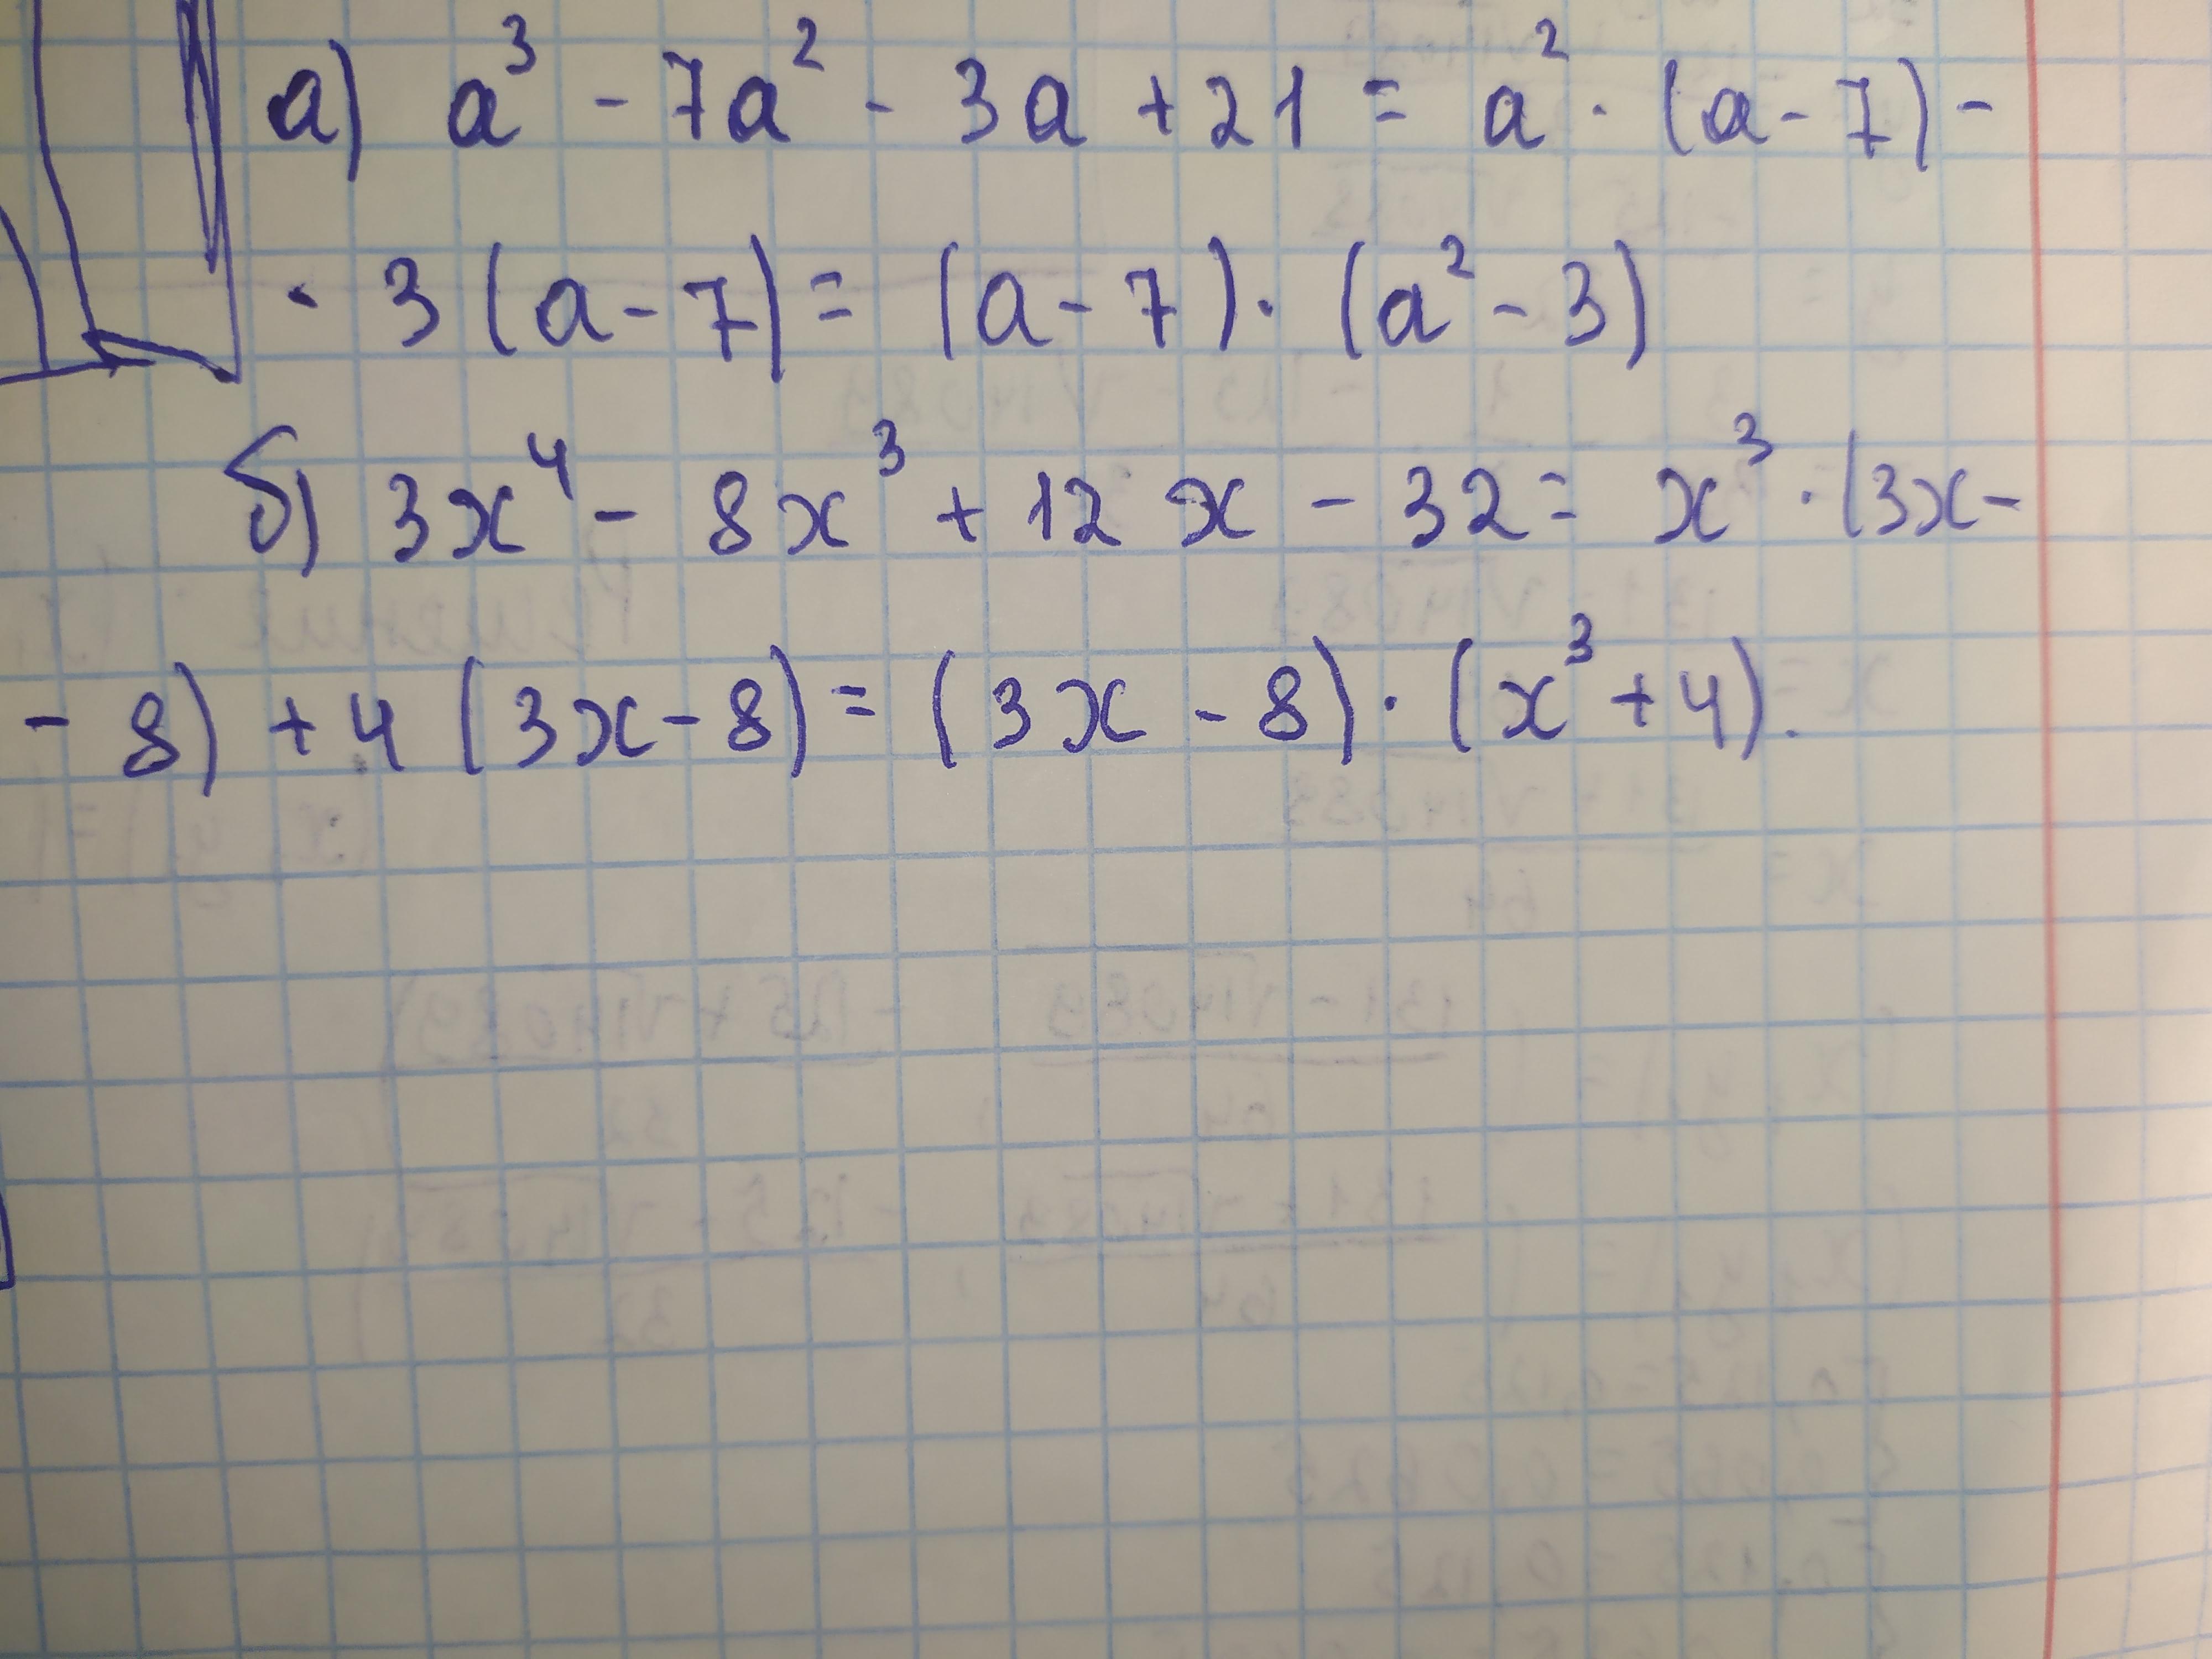 а) a³ - 7a² - 3a + 21 = a² · (a - 7) -
- 3 (a - 7) = (a - 7) · (a² - 3)
б) 3x⁴ - 8x³ + 12x - 32 = x³ · (3x -
- 8) + 4 (3x - 8) = (3x - 8) · (x³ + 4).